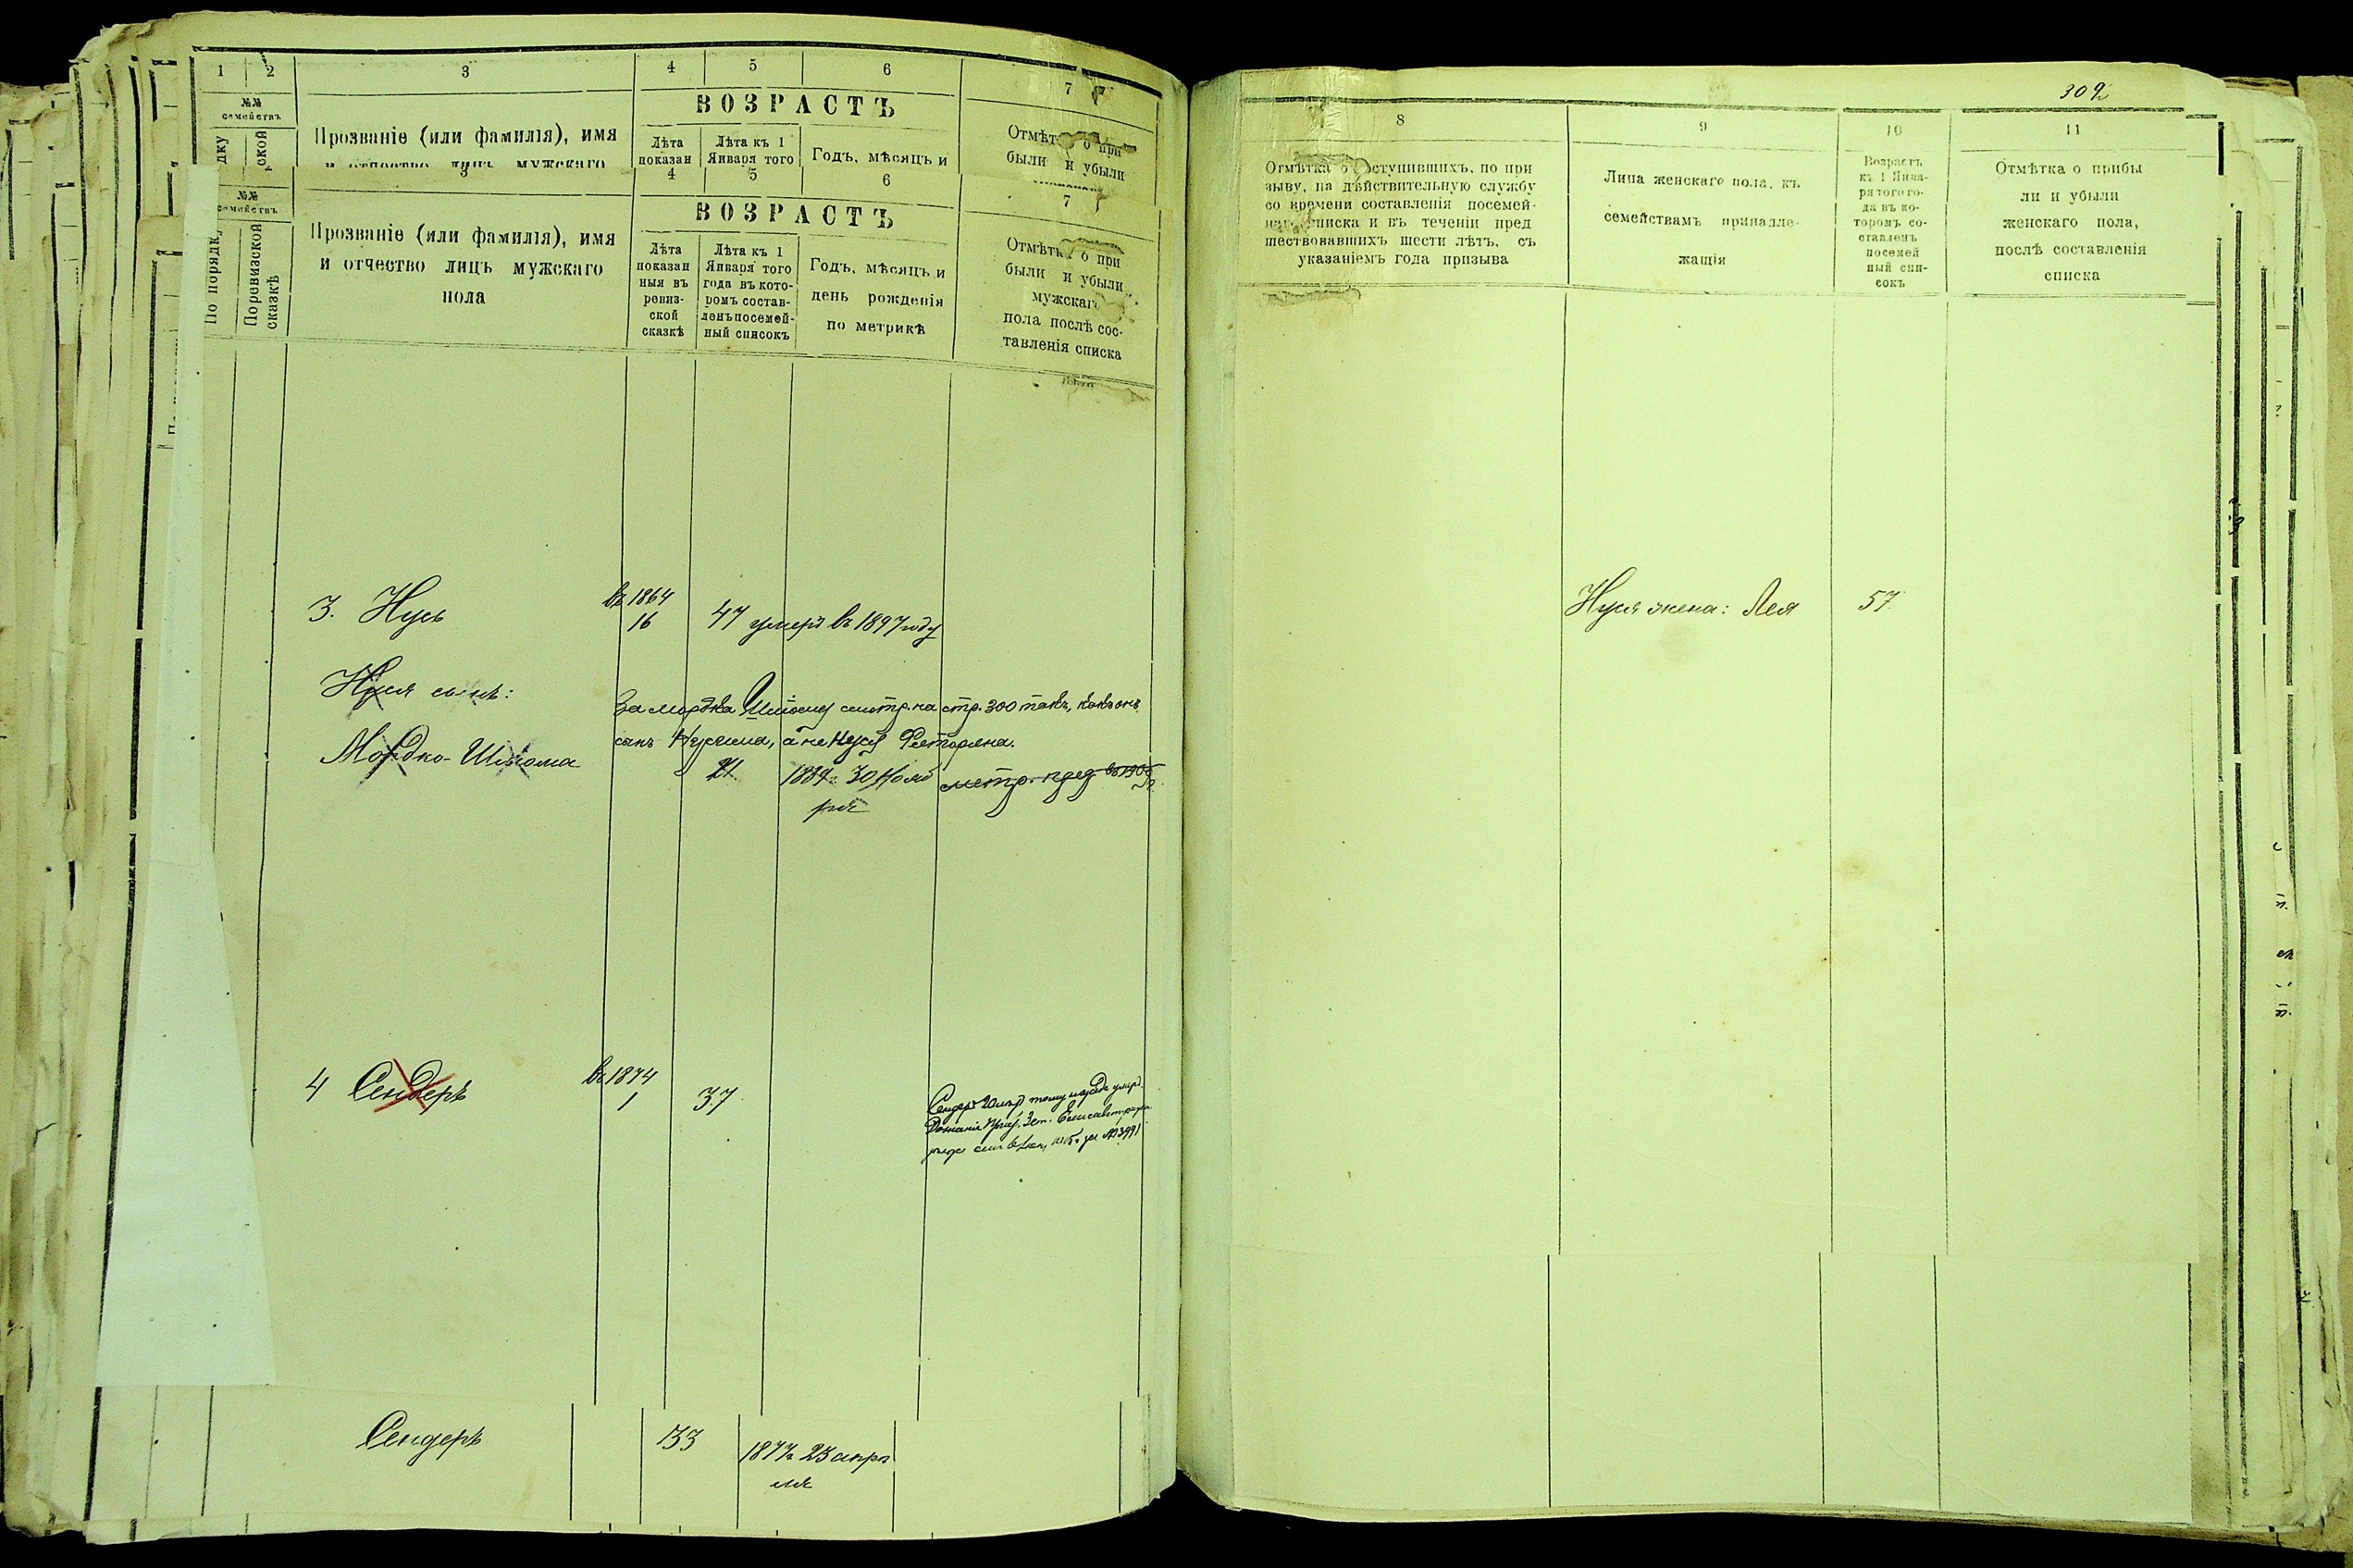 1 2 3 4 5 6 7
№№
семействъ
Прозваніе (или фамилія), имя
ВОЗРАСТЪ
Лѣта
показан
Лѣта къ 1
Января того
Годъ, мѣсяцъ и
были и убыли
3 4 5 6 7
№№
семействъ
По порядку
По ревизской
сказкѣ
Прозваніе (или фамилія), имя
и отчество лицъ мужскаго
пола
ВОЗРАСТЪ
Лѣта
показан
ныя въ
ревиз-
ской
сказкѣ
Лѣта къ 1
Января того
года въ кото-
ромъ состав-
ленъ посемей-
ный списокъ
Годъ, мѣсяцъ и
день рожденія
по метрикѣ
Отмѣтка о при
были и убыли
мужскаго
пола послѣ сос-
тавленія списка
3. Нусь
въ 1864
16
47 умеръ въ 1897 году
Нуся сынъ:
За Мордка Шлёму смотр. на стр. 300 такъ, какъ онъ
сынъ а не Нуся
Мордко-Шлема
21
1884 г. 30 Нояб
ря
метр. пред. въ
4 Сендеръ
въ 1874
1
37
Сендеръ 20 лѣтъ тому назадъ умеръ.
Сендеръ
33
1877 г. 23 апрѣ
ля
302
8 9 10 11
Отмѣтка о поступившихъ, по при
зыву, на дѣйствительную службу
со времени составленія посемей-
наго списка и въ теченіи пред
шествовавшихъ шести лѣтъ, съ
указаніемъ года призыва
Лица женскаго пола, къ
семействамъ принадле-
жащія
Возрастъ
къ 1 Янва-
ря того го-
да въ ко-
торомъ со-
ставленъ
посемей
ный спи-
сокъ
Отмѣтка о прибы
ли и убыли
женскаго пола,
послѣ составленія
списка
Нуся жена: Лея
57